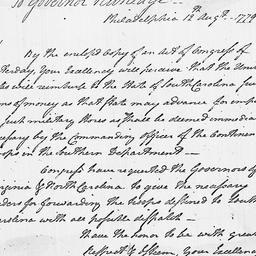 To Governor Rutledge
Philadelphia 12th Augt. 1779
By the enclosed Copy of an Act of Congress of
Yesterday, Your Excellency will perceive that the Unit
es will reimburse to the State of South Carolina such
ms of money as that State may advance for emp
such military stores as shall be deemed immedia
essary by the Commanding Officer of the Continen
oops in the Southern Department —
Congress have requested the Governors of
irginia & North Carolina to give the necessary
ders for forwarding the troops destined to South
arolina with all possible despatch —
I have the honor to be with great
Respect & Esteem, Your Excellency